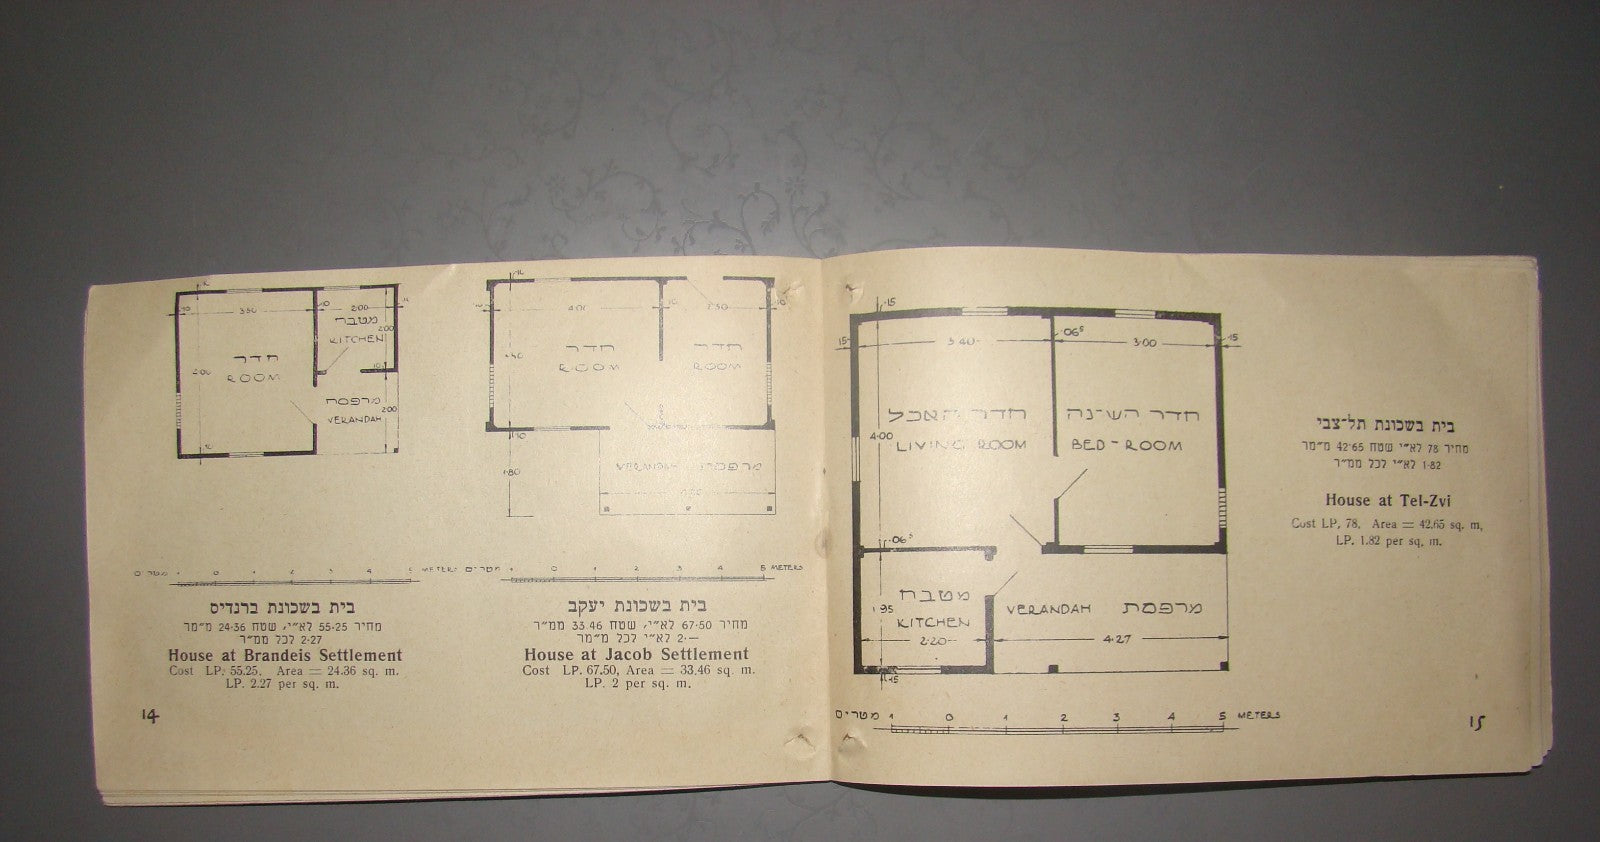 3.50
2.00
מטבח
KITCHEN
2.00
חדר
ROOM
4.00
מרפסת
VERANDAH
2.00
4.00
חדר
ROOM
חדר
ROOM
1.80
VERANDAH מרפסת
מטרים 1 0 1 2 3 4 5 METERS
מטרים 1 0 1 2 3 4 5 METERS
בית בשכונת ברנדיס
מחיר 55·25 לא״י, שטח 24·36 מ״מר
2·27 לכל ממ״ר
House at Brandeis Settlement
Cost LP. 55.25, Area = 24.36 sq. m.
LP. 2.27 per sq. m.
14
בית בשכונת יעקב
מחיר 67·50 לא״י, שטח 33.46 ממ״ר
2·— לא״י לכל מ״מר
House at Jacob Settlement
Cost LP. 67.50, Area = 33.46 sq. m.
LP. 2 per sq. m.
·15
15
·06⁵
·15
3·40
3·00
חדר האכל
LIVING ROOM
חדר השינה
BED-ROOM
4·00
·06⁵
1·95
מטבח
KITCHEN
2·20
VERANDAH מרפסת
4·27
·15
מטרים 1 0 1 2 3 4 5 METERS
בית בשכונת תל־צבי
מחיר 78 לא״י שטח 42·65 מ״מר
1·82 לא״י לכל ממ״ר
House at Tel-Zvi
Cost LP. 78, Area = 42.65 sq. m,
LP. 1.82 per sq. m.
15